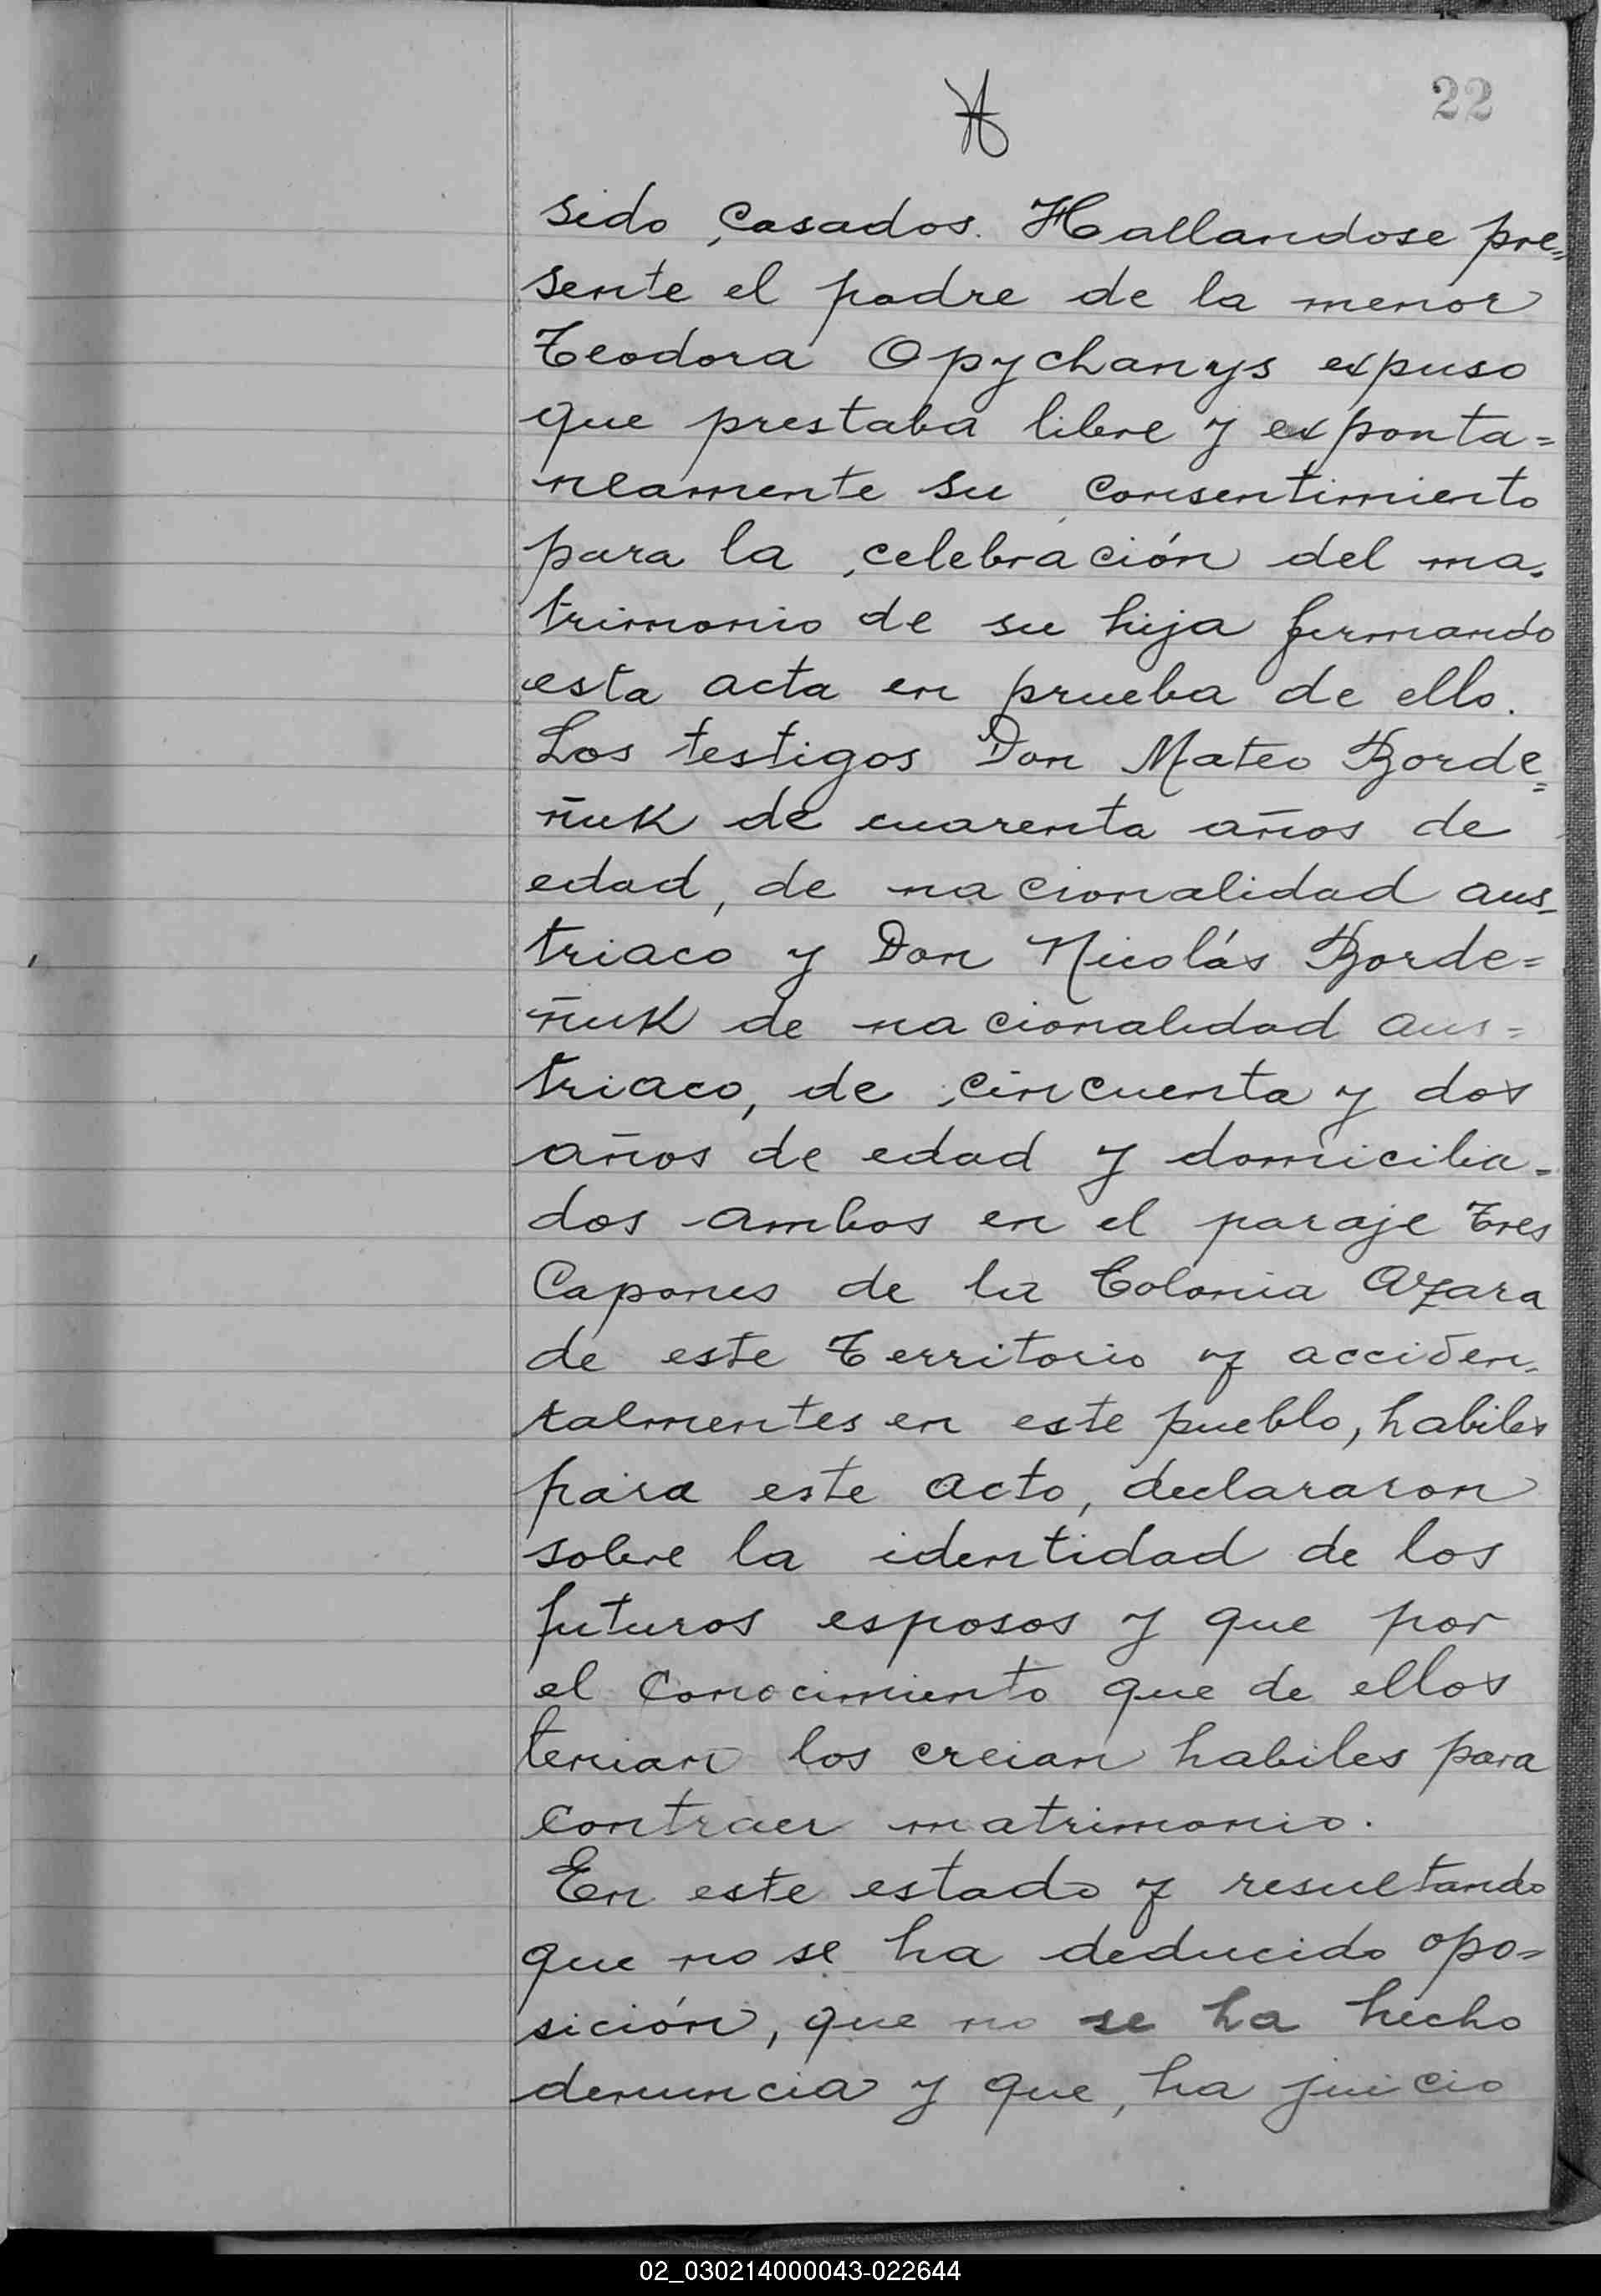 22
sido casados. Hallandose pre=
sente el padre de la menor
Teodora Opychanys expuso
que prestaba libre y exponta=
neamente su consentimiento
para la celebración del ma-
trimonio de su hija firmando
esta acta en prueba de ello.
Los testigos Don Mateo Borde=
ñuk de cuarenta años de
edad, de nacionalidad aus-
triaco y Don Nicolás Borde=
ñuk de nacionalidad aus=
triaco, de cincuenta y dos
años de edad y domicilia=
dos ambos en el paraje Tres
Capones de la Colonia Azara
de este Territorio y acciden-
talmentes en este pueblo, habiles
para este acto, declararon
sobre la identidad de los
futuros esposos y que por
el conocimiento que de ellos
tenian los creian habiles para
contraer matrimonio.
En este estado y resultando
que no se ha deducido opo=
sición, que no se ha hecho
denuncia y que, ha juicio
02_030214000043-022644